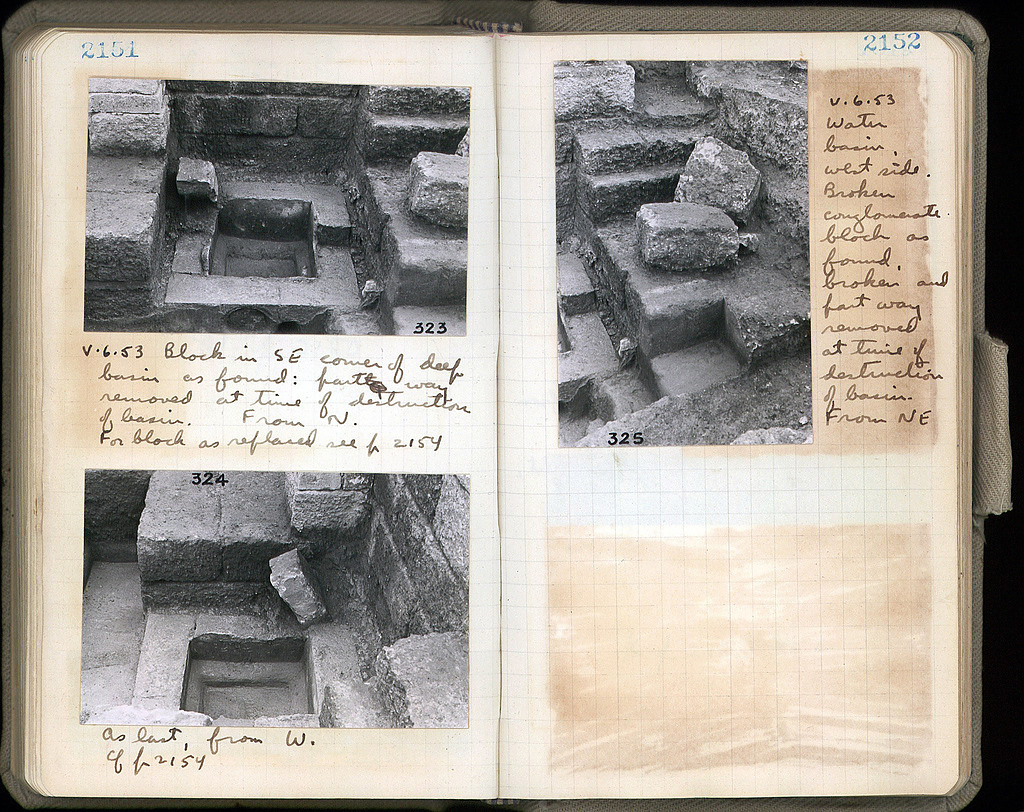 2151
323
V.6.53 Block in SE corner of deep
basin as found: partly way
removed at time of destruction
of basin. From N.
For block as replaced see p 2154
324
As last, from W.
Cf p 2154
2152
325
V.6.53
Water
basin,
west side.
Broken
conglomerate
block as
found,
broken and
part way
removed
at time of
destruction
of basin.
From NE